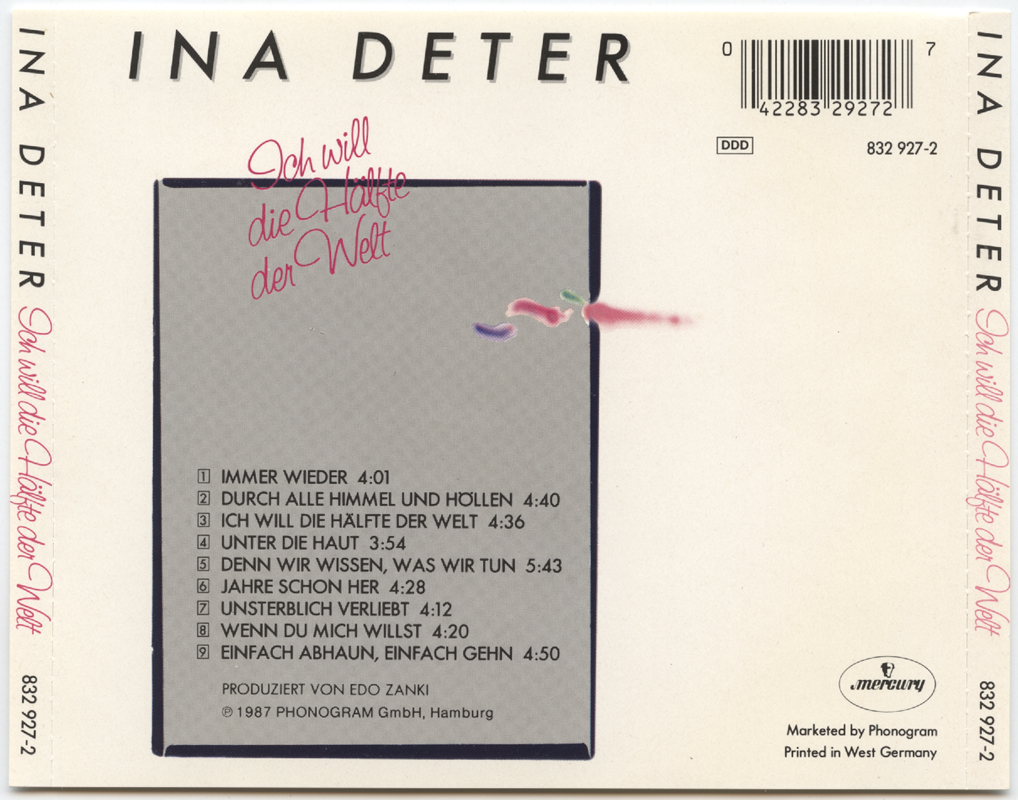 INA DETER Ich will die Hälfte der Welt 832 927-2
INA DETER
0 42283 29272 7
DDD
832 927-2
Ich will
die Hälfte
der Welt
1 IMMER WIEDER 4:01
2 DURCH ALLE HIMMEL UND HÖLLEN 4:40
3 ICH WILL DIE HÄLFTE DER WELT 4:36
4 UNTER DIE HAUT 3:54
5 DENN WIR WISSEN, WAS WIR TUN 5:43
6 JAHRE SCHON HER 4:28
7 UNSTERBLICH VERLIEBT 4:12
8 WENN DU MICH WILLST 4:20
9 EINFACH ABHAUN, EINFACH GEHN 4:50
PRODUZIERT VON EDO ZANKI
℗ 1987 PHONOGRAM GmbH, Hamburg
mercury
Marketed by Phonogram
Printed in West Germany
INA DETER Ich will die Hälfte der Welt 832 927-2